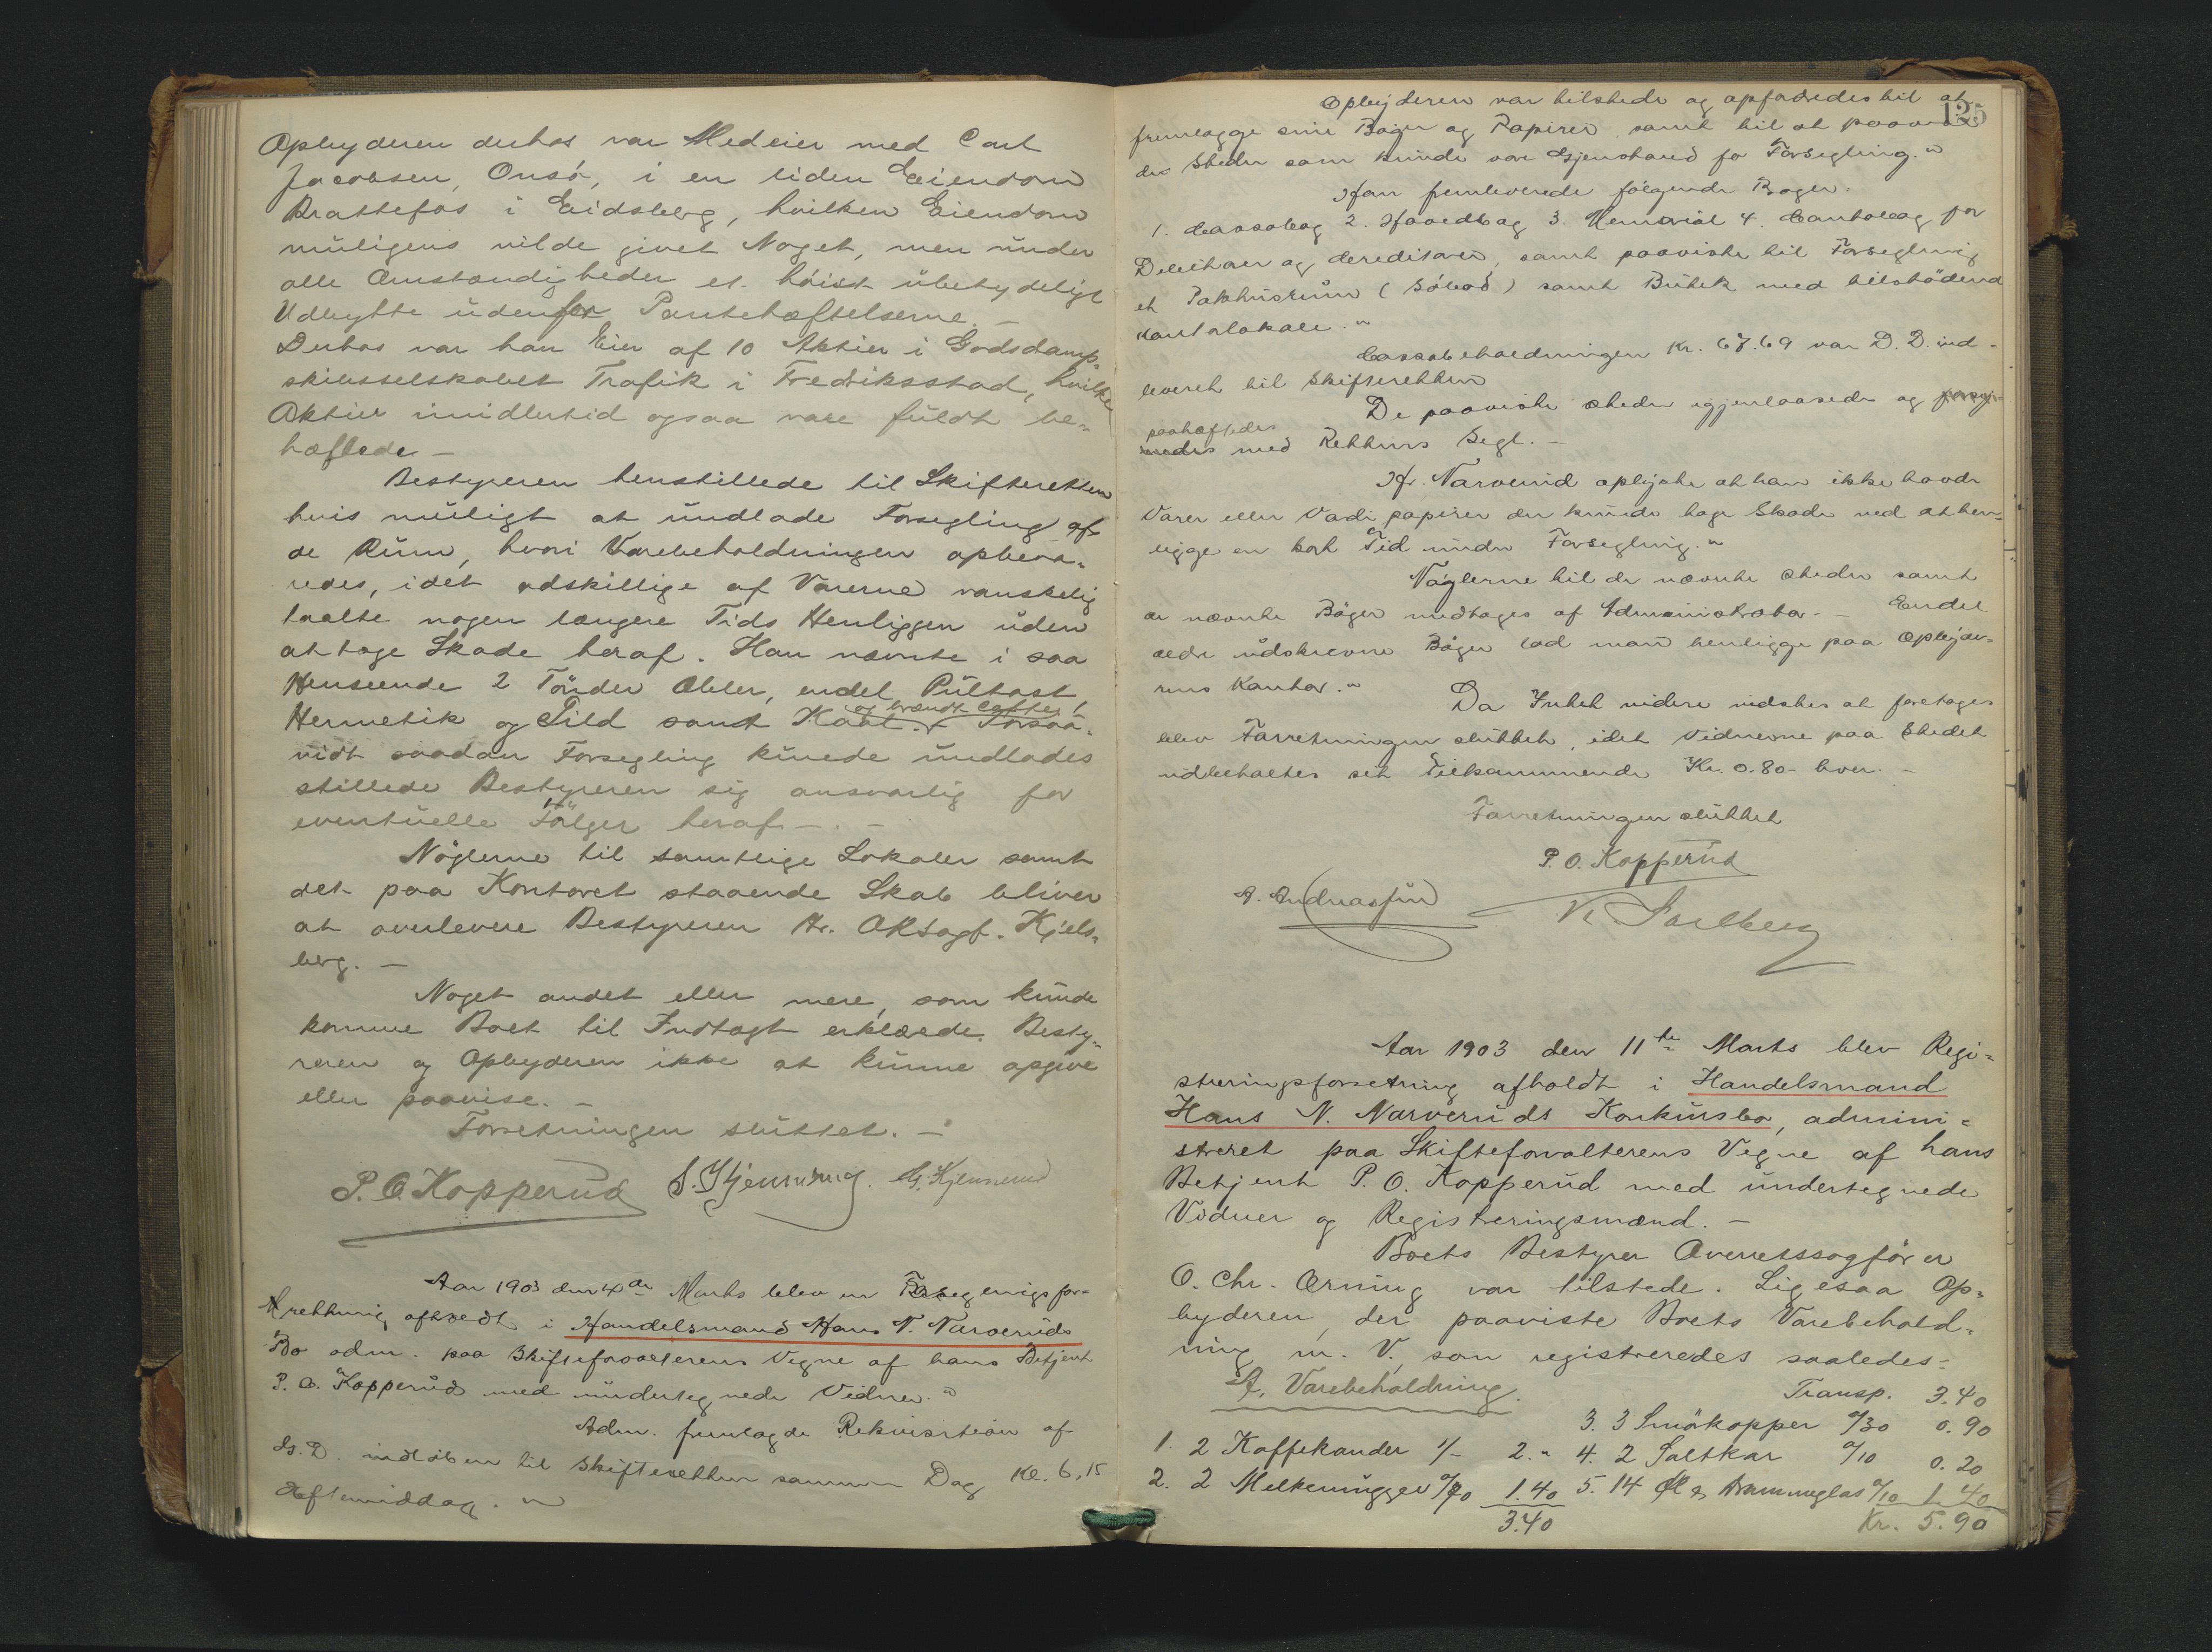 Opbyderen derhos var Medeier med Carl
Jacobsen, Onsö, i en liden Eiendom
Brattefos i Eidsberg, hvilken Eiendom
muligens vilde givet Noget, men under
alle Omstændigheder et höist ubetydeligt
Udbytte udenfor Pantehæftelserne. —
Derhos var han Eier af 10 Aktier i Godsdamp-
skibsselskabet Trafik i Fredriksstad, hvilke
Aktier imidlertid ogsaa vare fuldt be-
hæftede. —
Bestyreren henstillede til Skifteretten
hvis muligt at undlade Forsegling af
de Rum, hvori Varebeholdningen opbeva-
redes, idet adskillige af Varerne vanskelig
taalte nogen længere Tids Henliggen uden
at tage Skade heraf. Han nævnte i saa
Henseende 2 Tönder Æbler, endel Pultost,
og brændt Caffe
Hermetik og Sild samt Kaal. Forsaa-
vidt saadan Forsegling kunde undlades
stillede Bestyreren sig ansvarlig for
eventuelle Fölger heraf. —
Nöglerne til samtlige Lokaler samt
det paa Kontoret staaende Skab bliver
at overlevere Bestyreren Hr. ORSagf. Kjels-
berg. —
Noget andet eller mere, som kunde
komme Boet til Indtægt erklærede Besty-
reren og Opbyderen ikke at kunne opgive
eller paavise. —
Forretningen sluttet. —
P. O. Kopperud S. Hjemming.
Aar 1903 den 4de Marts blev en Forseglingsfor-
retning afholdt i Handelsmand Hans N. Narveruds
Bo adm. paa Skifteforvalterens Vegne af hans Betjent
P. O. Kopperud med undertegnede Vidner.
Adm. fremlagde Rekvisition af
D. D. indkommen til Skifteretten samme Dag Kl. 6,15
Eftermiddag.
125
Opbyderen var tilstede og opfordredes til at
fremlægge sine Böger og Papirer, samt til at paavise
de Steder som kunde være Gjenstand for Forsegling.
Han fremleverede fölgende Böger.
1. Cassabog 2. Hovedbog 3. Memorial 4. Contobog for
Debitorer og Creditorer, samt paaviste til Forsegling
et Pakhusrum (Söbod) samt Butik med tilstödende
Kontorlokale.
Cassabeholdningen Kr. 67.69 var D. D. ind-
leveret til Skifteretten
De paaviste Steder igjenlaasedes og forsyn-
paahæftedes
nedes med Rettens Segl. —
Hr. Narverud oplyste at han ikke havde
Varer eller Værdipapirer der kunde tage Skade ved at hen-
ligge en kort Tid under Forsegling.
Nöglerne til de nævnte Steder samt
de nævnte Böger modtages af Administrator. — Endel
ældre udskrevne Böger lod man henligge paa Opbyde-
rens Kontor.
Da Intet videre vidstes at foretages
blev Forretningen sluttet, idet Vidnerne paa Stedet
udbetaltes sit Tilkommende Kr. 0.80 hver. —
Forretningen sluttet
P. O. Kopperud
A. Andreassen
Aar 1903 den 11te Marts blev Regi-
streringsforretning afholdt i Handelsmand
Hans N. Narveruds Konkursbo, admini-
streret paa Skifteforvalterens Vegne af hans
Betjent P. O. Kopperud med undertegnede
Vidner og Registreringsmænd. —
Boets Bestyrer Overretssagförer
O. Chr. Örning var tilstede. Ligesaa Op-
byderen, der paaviste Boets Varebehold-
ning m. V., som registreredes saaledes:
A. Varebeholdning.
1. 2 Kaffekander 1/- 2. "
2. 2 Melkemugger a/70 1.40
3.40
Transp. 3.40
3. 3 Smörkopper a/30 0.90
4. 2 Saltkar a/10 0.20
5. 14 Öl & Drammeglas a/10 1.40
Kr. 5.90